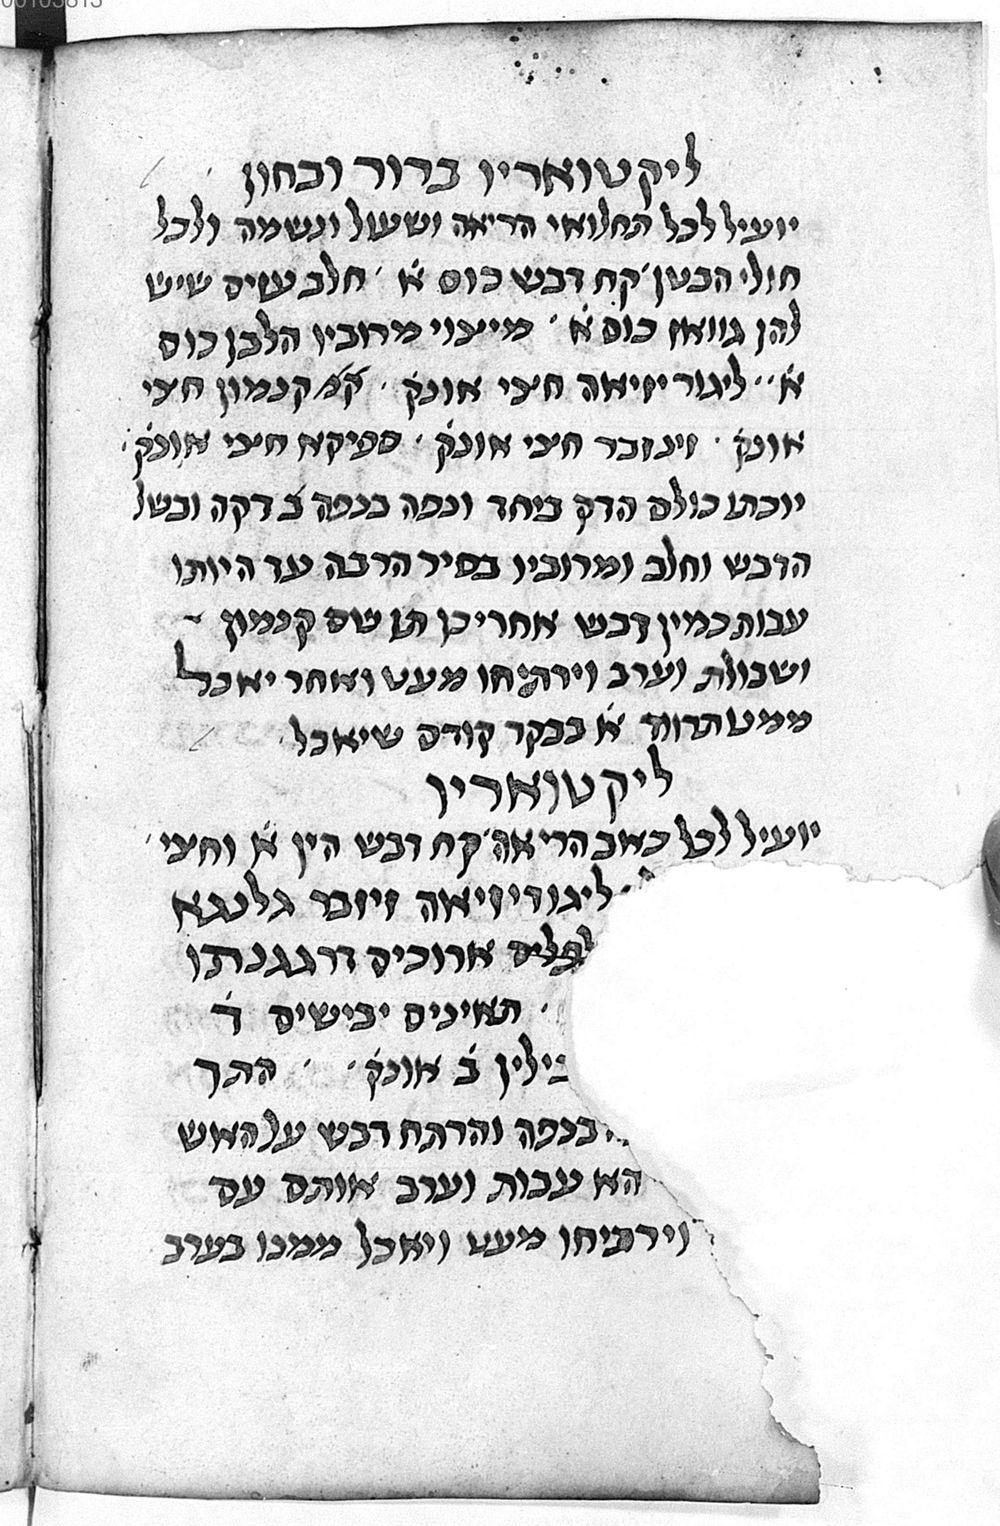 00105813
ליקטואריו ברור ובחון
יועיל לכל תחלואי הריאה ושעול ונשמה ולכל
חולי הבטן קח דבש כוס א׳ חלב עזים שיש
להן גוואן כוס א׳ מיצוי מרוביו הלבן כוס
א׳ ליגוריזיאה חצי אונק׳ קנמון חצי
אונק׳ זינזבר חצי אונק׳ ספיקא חצי אונק׳
יוכתו כולם הדק ביחד ונפה בנפה ב דקה ובשל
הדבש וחלב ומרוביו בסיר הרבה עד היותו
עבות כמין דבש אחרי כן תן שם קנמון
ושבולת וערב וירתיחו מעט ואחר יאכל
ממט תרווד א׳ בבקר קודם שיאכל
ליקטואריו
יועיל לכל כאב הריאה קח דבש הין א׳ וחצי
ליגוריזיאה זיזבר גלנגא
ארוכים דרגגנתו
תאינים יבישים ד׳
בילין ב׳ אונק׳ התך
בנפה והרתח דבש על האש
הא עבות וערב אותם עם
וירתיחו מעט ויאכל ממנו בערב